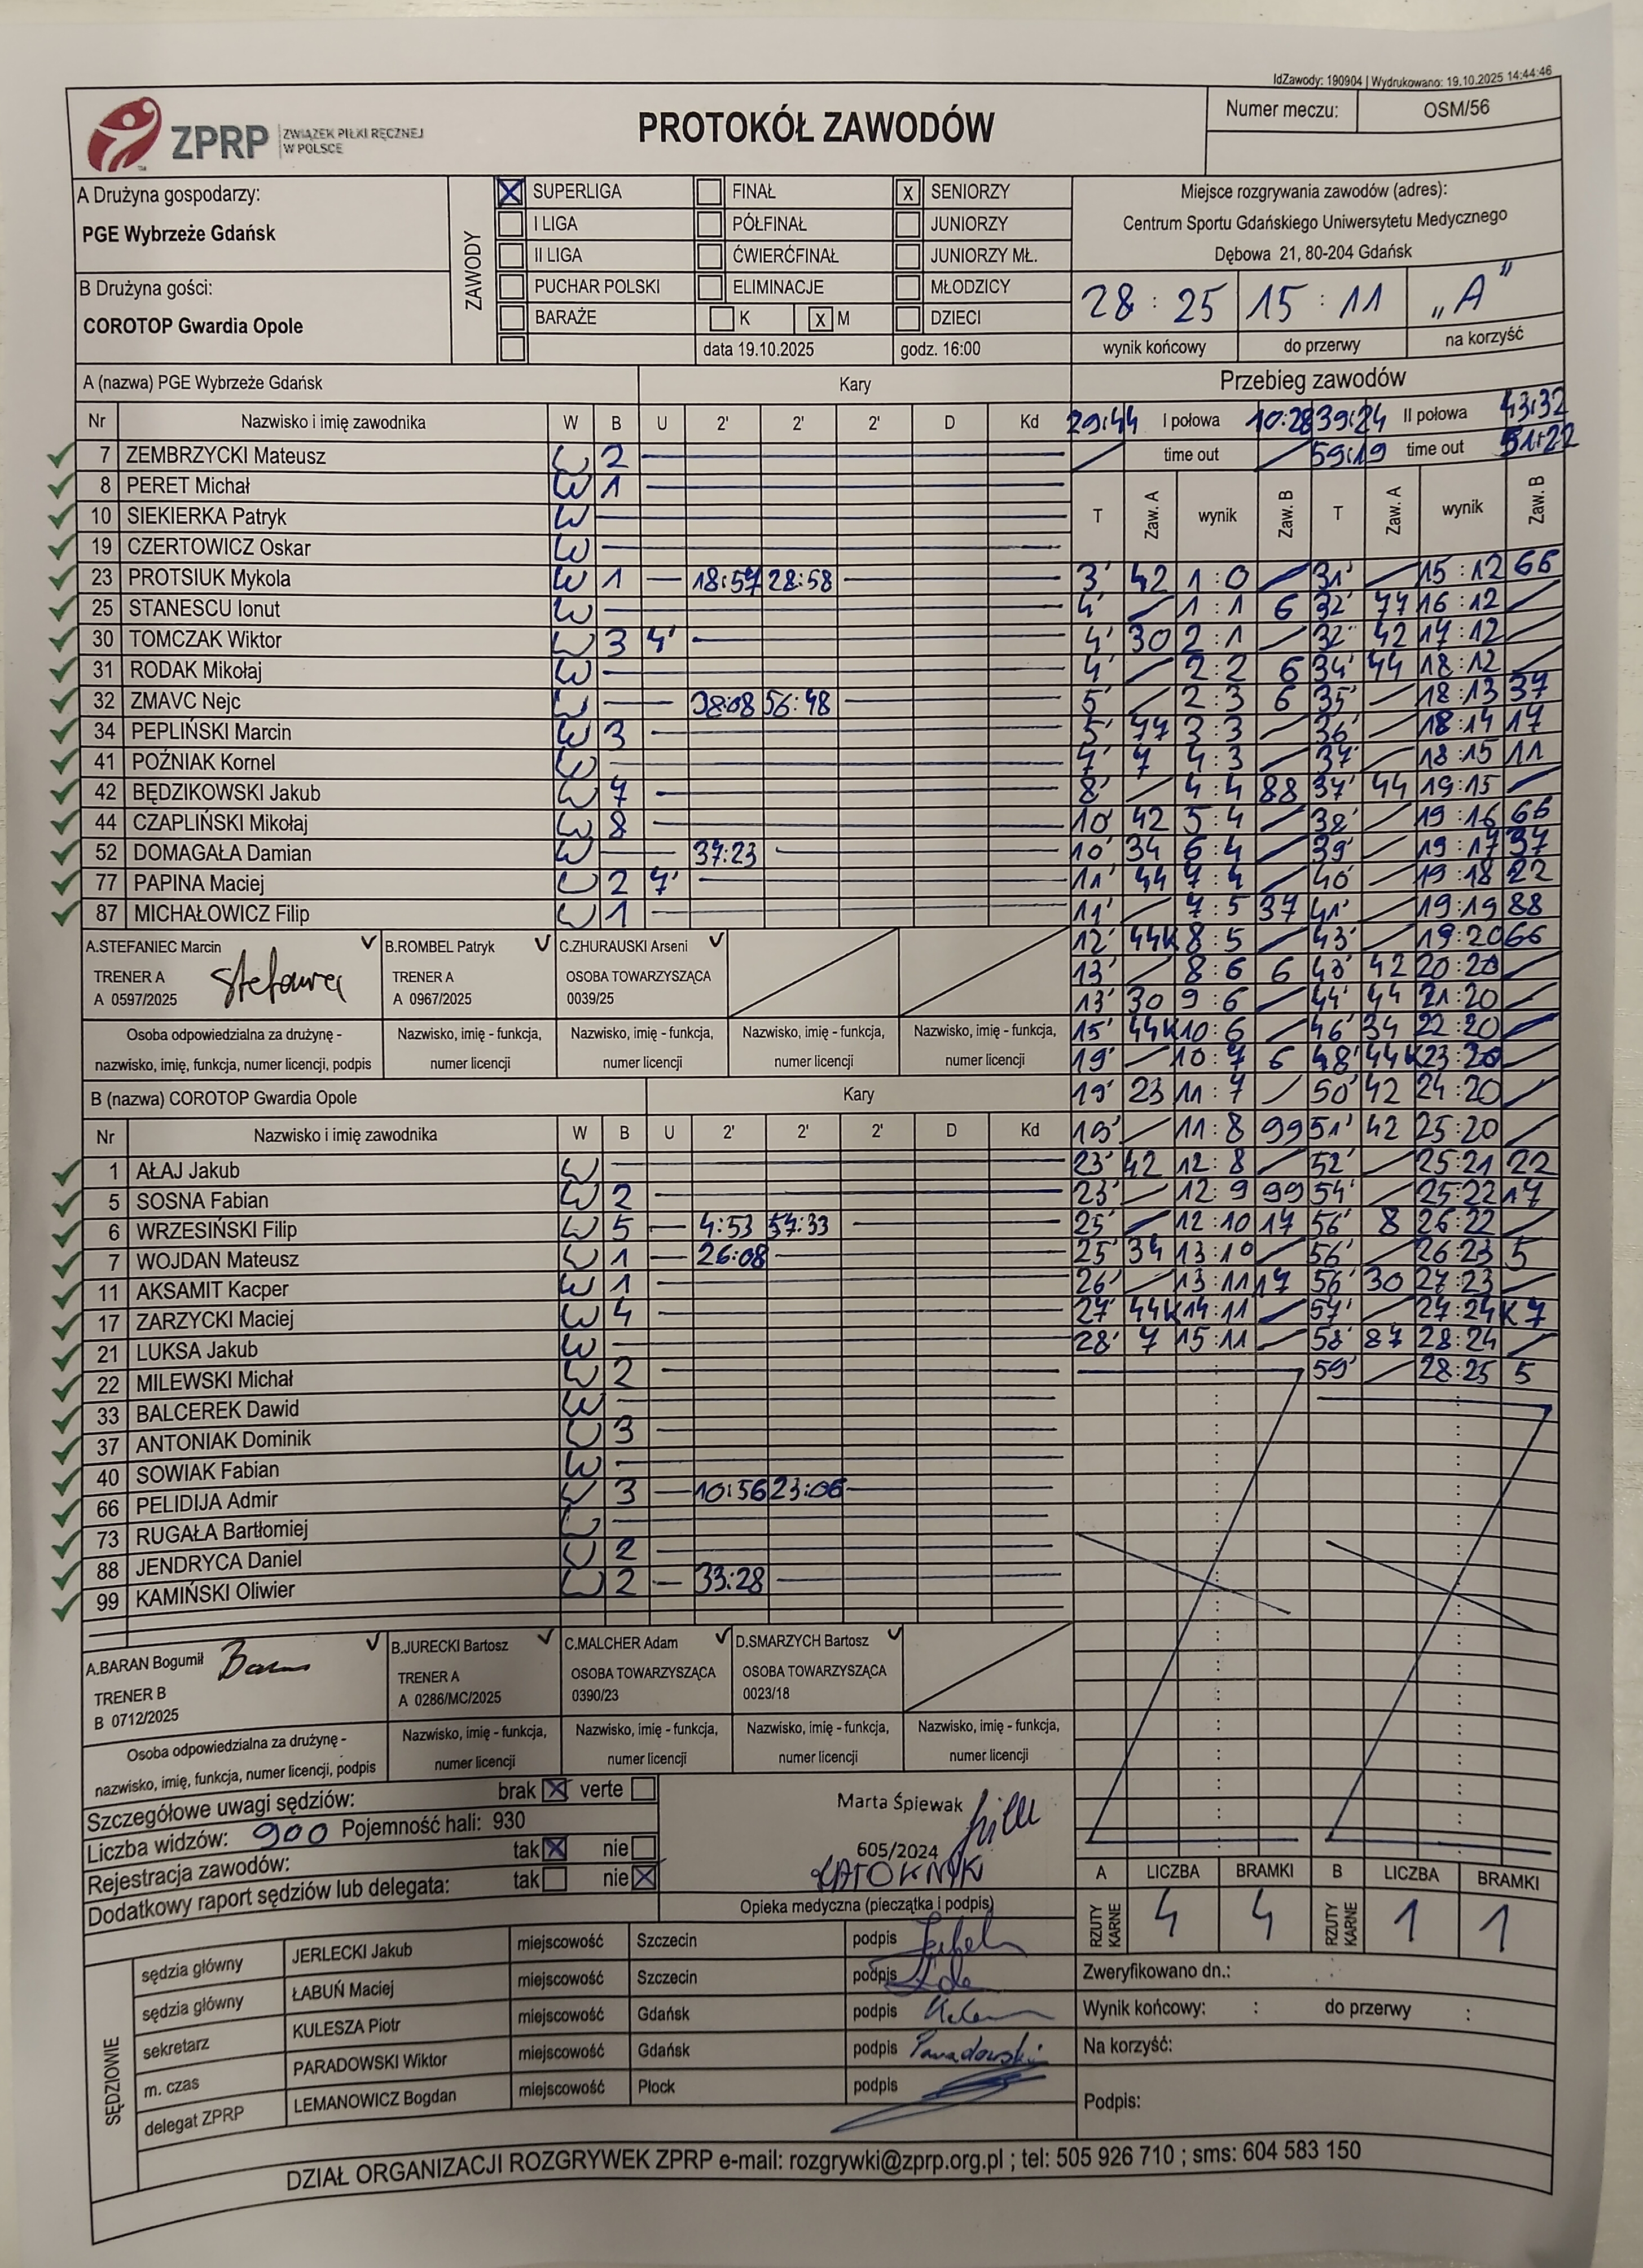 IdZawody: 190904 | Wydrukowano: 19.10.2025 14:44:46
ZPRP ZWIĄZEK PIŁKI RĘCZNEJ W POLSCE
PROTOKÓŁ ZAWODÓW
Numer meczu: OSM/56
A Drużyna gospodarzy:
PGE Wybrzeże Gdańsk
B Drużyna gości:
COROTOP Gwardia Opole
ZAWODY
X SUPERLIGA FINAŁ X SENIORZY
I LIGA PÓŁFINAŁ JUNIORZY
II LIGA ĆWIERĆFINAŁ JUNIORZY MŁ.
PUCHAR POLSKI ELIMINACJE MŁODZICY
BARAŻE K X M DZIECI
data 19.10.2025 godz. 16:00
Miejsce rozgrywania zawodów (adres):
Centrum Sportu Gdańskiego Uniwersytetu Medycznego
Dębowa 21, 80-204 Gdańsk
28 : 25 15 : 11 „A"
wynik końcowy do przerwy na korzyść
A (nazwa) PGE Wybrzeże Gdańsk Kary
Nr Nazwisko i imię zawodnika W B U 2' 2' 2' D Kd
7 ZEMBRZYCKI Mateusz W 2
8 PERET Michał W 1
10 SIEKIERKA Patryk W
19 CZERTOWICZ Oskar W
23 PROTSIUK Mykola W 1 18:57 28:58
25 STANESCU Ionut W
30 TOMCZAK Wiktor W 3 4'
31 RODAK Mikołaj W
32 ZMAVC Nejc W 56:48
34 PEPLIŃSKI Marcin W 3
41 POŹNIAK Kornel W
42 BĘDZIKOWSKI Jakub W 7
44 CZAPLIŃSKI Mikołaj W 8
52 DOMAGAŁA Damian W 37:23
77 PAPINA Maciej W 2 7'
87 MICHAŁOWICZ Filip W 1
A.STEFANIEC Marcin
TRENER A
A 0597/2025
B.ROMBEL Patryk
TRENER A
A 0967/2025
C.ZHURAUSKI Arseni
OSOBA TOWARZYSZĄCA
0039/25
Osoba odpowiedzialna za drużynę -
nazwisko, imię, funkcja, numer licencji, podpis
Nazwisko, imię - funkcja,
numer licencji
Nazwisko, imię - funkcja,
numer licencji
Nazwisko, imię - funkcja,
numer licencji
Nazwisko, imię - funkcja,
numer licencji
B (nazwa) COROTOP Gwardia Opole Kary
Nr Nazwisko i imię zawodnika W B U 2' 2' 2' D Kd
1 AŁAJ Jakub W
5 SOSNA Fabian W 2
6 WRZESIŃSKI Filip W 5 4:53 57:33
7 WOJDAN Mateusz W 1 26:08
11 AKSAMIT Kacper W 1
17 ZARZYCKI Maciej W 4
21 LUKSA Jakub W
22 MILEWSKI Michał W 2
33 BALCEREK Dawid W
37 ANTONIAK Dominik W 3
40 SOWIAK Fabian W
66 PELIDIJA Admir W 3 10:56 23:06
73 RUGAŁA Bartłomiej W
88 JENDRYCA Daniel W 2
99 KAMIŃSKI Oliwier W 2 33:28
A.BARAN Bogumił
TRENER B
B 0712/2025
B.JURECKI Bartosz
TRENER A
A 0286/MC/2025
C.MALCHER Adam
OSOBA TOWARZYSZĄCA
0390/23
D.SMARZYCH Bartosz
OSOBA TOWARZYSZĄCA
0023/18
Osoba odpowiedzialna za drużynę -
nazwisko, imię, funkcja, numer licencji, podpis
Nazwisko, imię - funkcja,
numer licencji
Nazwisko, imię - funkcja,
numer licencji
Nazwisko, imię - funkcja,
numer licencji
Nazwisko, imię - funkcja,
numer licencji
Przebieg zawodów
29:44 I połowa 10:28 39:24 II połowa 43:32
time out 59:19 time out 51:22
T Zaw. A wynik Zaw. B T Zaw. A wynik Zaw. B
3' 42 1 : 0 31' 15 : 12 66
4' 1 : 1 6 32' 77 16 : 12
4' 30 2 : 1 32' 42 17 : 12
4' 2 : 2 6 34' 44 18 : 12
5' 2 : 3 6 35' 18 : 13 37
5' 77 3 : 3 36' 18 : 14 17
7' 7 4 : 3 37' 18 : 15 11
8' 4 : 4 88 37' 44 19 : 15
10' 42 5 : 4 38' 19 : 16 66
10' 34 6 : 4 39' 19 : 17 37
11' 44 7 : 4 40' 19 : 18 22
11' 7 : 5 37 41' 19 : 19 88
12' 44K 8 : 5 43' 19 : 20 66
13' 8 : 6 6 43' 42 20 : 20
13' 30 9 : 6 44' 44 21 : 20
15' 44K 10 : 6 46' 34 22 : 20
19' 10 : 7 6 48' 44K 23 : 20
19' 23 11 : 7 50' 42 24 : 20
19' 11 : 8 99 51' 42 25 : 20
23' 42 12 : 8 52' 25 : 21 22
23' 12 : 9 99 54' 25 : 22 17
25' 12 : 10 17 56' 8 26 : 22
25' 34 13 : 10 56' 26 : 23 5
26' 13 : 11 17 56' 30 27 : 23
27' 44K 14 : 11 57' 27 : 24 K7
28' 7 15 : 11 58' 87 28 : 24
59' 28 : 25 5
Szczegółowe uwagi sędziów: brak X verte
Liczba widzów: 900 Pojemność hali: 930
Rejestracja zawodów: tak X nie
Dodatkowy raport sędziów lub delegata: tak nie X
Marta Śpiewak
605/2024
Opieka medyczna (pieczątka i podpis)
A LICZBA BRAMKI B LICZBA BRAMKI
RZUTY KARNE 4 4 RZUTY KARNE 1 1
SĘDZIOWIE
sędzia główny JERLECKI Jakub miejscowość Szczecin podpis
sędzia główny ŁABUŃ Maciej miejscowość Szczecin podpis
sekretarz KULESZA Piotr miejscowość Gdańsk podpis
m. czas PARADOWSKI Wiktor miejscowość Gdańsk podpis Paradowski
delegat ZPRP LEMANOWICZ Bogdan miejscowość Płock podpis
Zweryfikowano dn.:
Wynik końcowy: : do przerwy :
Na korzyść:
Podpis:
DZIAŁ ORGANIZACJI ROZGRYWEK ZPRP e-mail: rozgrywki@zprp.org.pl ; tel: 505 926 710 ; sms: 604 583 150